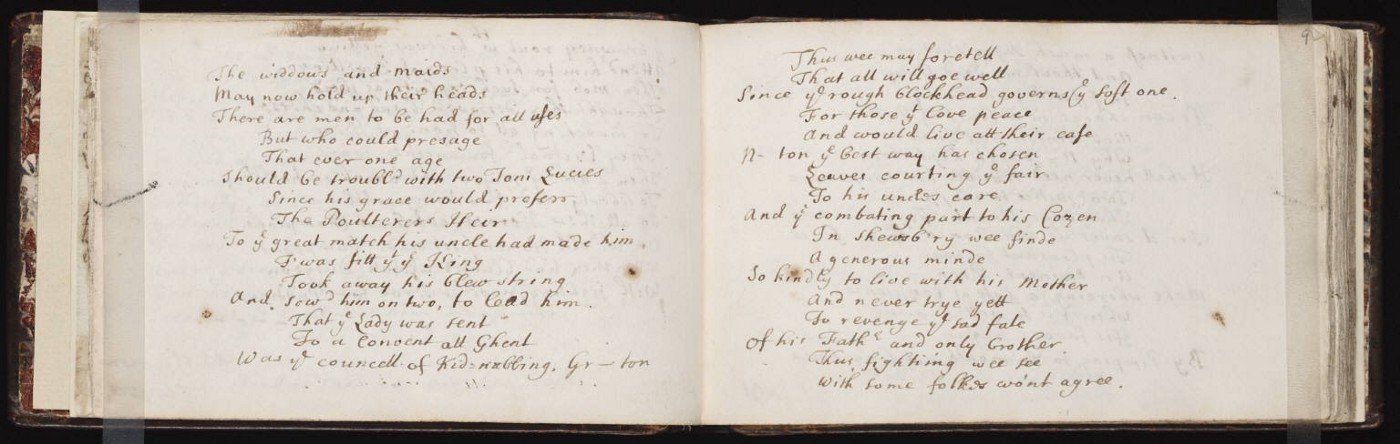 The widdows and maids
May now hold up their heads
There are men to be had for all uses
But who could presage
That ever one age
Should be troubl'd with two Toni Lucies
Since his grace would preferr
The Poulterers Heir
To yͤ great match his uncle had made him
T'was fitt yᵗ yͤ King
Took away his blew string
And sew'd him on two, to lead him.
That yͤ Lady was sent
To a Convent att Ghent
Was yͤ councell of Kid-nabbing, Gr—ton
Thus wee may foretell
That all will goe well
Since yͤ rough blockhead governs yͤ soft one.
For those yᵗ love peace
And would live att their ease
N- ton yͤ best way has chosen
Leaves courting yͤ fair
To his uncles care
And yͤ combating part to his Cozen
In Shewsb'ry wee finde
A generous minde
So kindly to live with his Mother
And never trye yett
To revenge yͤ sad fate
Of his Fathʳ and only brother
Thus fighting wee see
With some folkes wont agree.